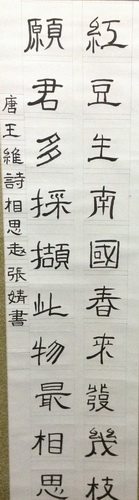 紅豆生南國春來發幾枝
願君多採擷此物最相思
唐王維詩相思赵張婧書